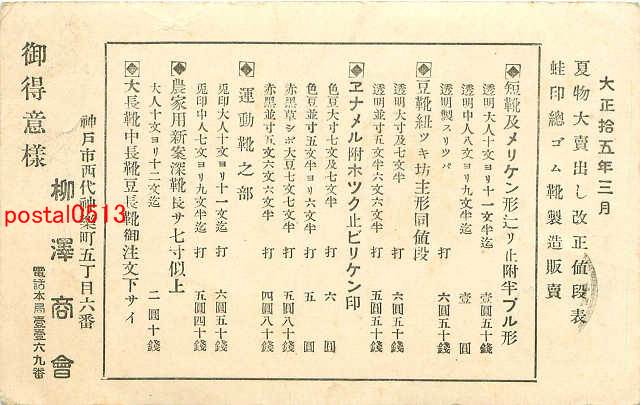 大正拾五年三月
夏物大賣出し改正値段表
蛙印總ゴム靴製造販賣
短靴及メリケン形辷リ止附半ブル形
透明大人十文ヨリ十一文半迄 壹圓五十錢
透明中人八文ヨリ九文半迄 壹圓
透明製スリツパ 打 六圓五十錢
豆靴紐ツキ坊主形同値段
透明大寸七文及七文半 打 六圓五十錢
透明並寸五文半六文六文半 打 五圓五十錢
ヱナメル附ホツク止ビリケン印
色豆大寸七文及七文半 打 六圓
色豆並寸五文半ヨリ六文半 打 五圓
赤黑草シボ大豆七文七文半 打 五圓八十錢
赤黑並寸五文六文六文半 打 四圓八十錢
運動靴之部
兎印大人十文ヨリ十一文半迄 打 六圓五十錢
兎印中人七文ヨリ九文半迄 打 五圓四十錢
農家用新案深靴長サ七寸似上
大人十文ヨリ十二文迄 二圓十錢
大長靴中長靴豆長靴御注文下サイ
神戸市西代神樂町五丁目六番
柳澤商會
電話本局壹壹六九番
御得意樣
postal0513